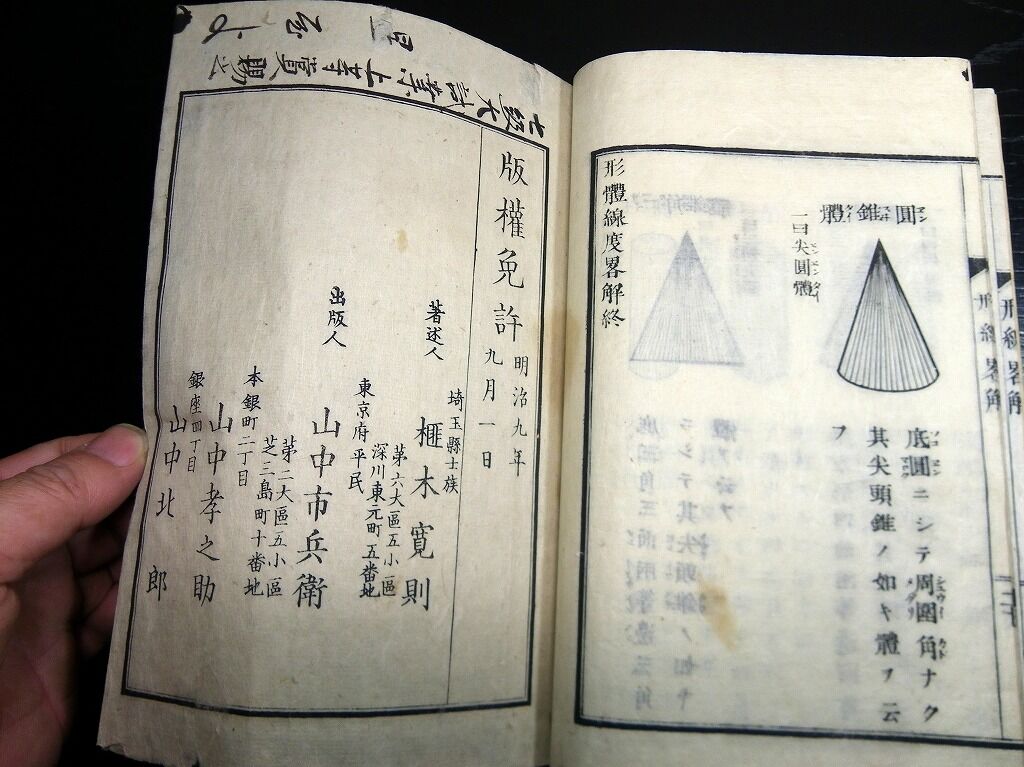 圓錐體
一曰尖圓體
底圓ニシテ周圍角ナク
其尖頭錐ノ如キ體ヲ云
フ
形體線度畧解終
版權免許
明治九年
九月一日
著述人
埼玉縣士族
榧木寛則
第六大區五小區
深川東元町五番地
出版人
東京府平民
山中市兵衛
第二大區五小區
芝三島町十番地
本銀町二丁目
山中孝之助
銀座四丁目
山中北郎
七級大試業上等賞賜之